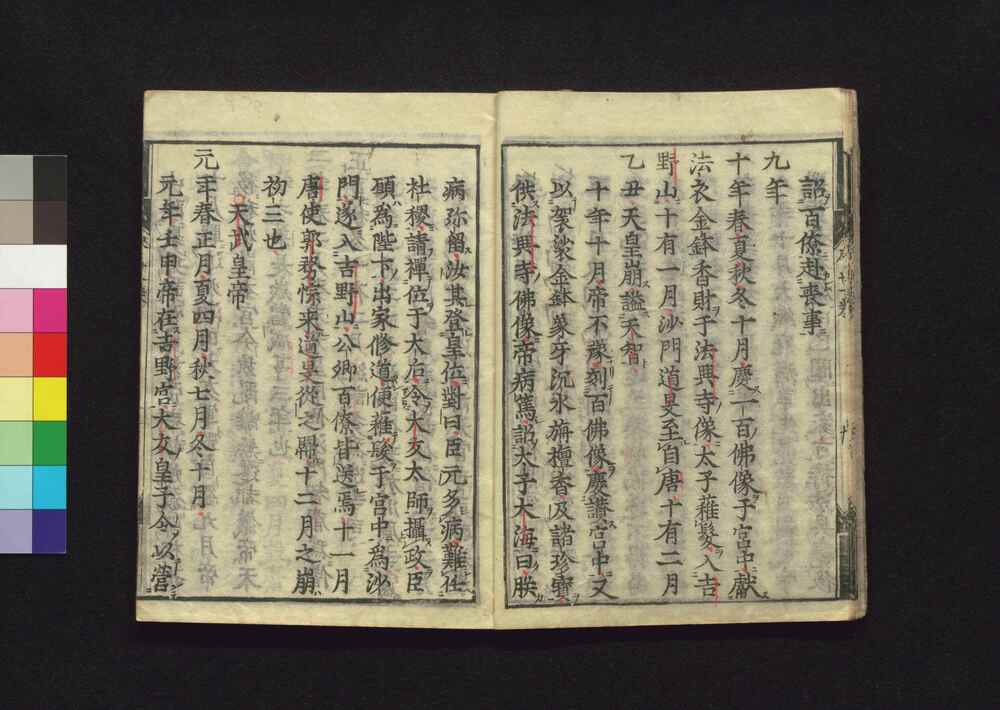 詔百僚赴喪事
九年
十年春夏秋冬十月慶一百佛像于宮中獻
法衣金鉢香財于法興寺像太子薙髮入吉
野山十有一月沙門道旻至自唐十有二月
乙丑天皇崩謚天智
十年十月帝不豫刻百佛像慶讃宮中又
以袈裟金鉢象牙沉水旃檀香及諸珍寶
供法興寺佛像帝病篤詔大子大海曰朕
病弥留汝其登皇位對曰臣元多病難任
社稷請禪位于大后令大友太師攝政臣
願爲陛下出家修道便薙髮于宮中爲沙
門遂入吉野山公卿百僚皆送焉十一月
唐使郭務悰来道旻從之歸十二月之崩
初三也
天武皇帝
元年春正月夏四月秋七月冬十月
元年壬申帝在吉野宮大友皇子令以營